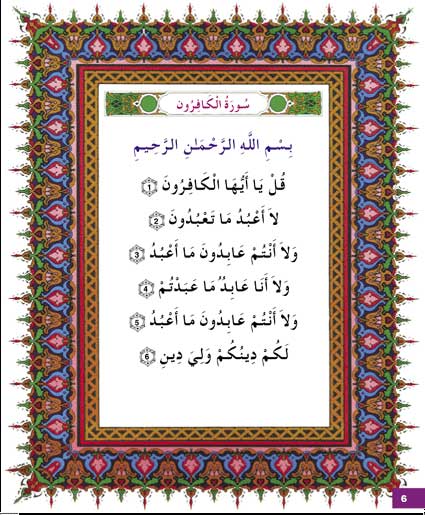 سُورَةُ الْكَافِرُون
بِسْمِ اللَّهِ الرَّحْمَـٰنِ الرَّحِيمِ
قُلْ يَا أَيُّهَا الْكَافِرُونَ ﴿1﴾
لاَ أَعْبُدُ مَا تَعْبُدُونَ ﴿2﴾
وَلاَ أَنْتُمْ عَابِدُونَ مَا أَعْبُدُ ﴿3﴾
وَلاَ أَنَا عَابِدٌ مَا عَبَدْتُمْ ﴿4﴾
وَلاَ أَنْتُمْ عَابِدُونَ مَا أَعْبُدُ ﴿5﴾
لَكُمْ دِينُكُمْ وَلِيَ دِينِ ﴿6﴾
6